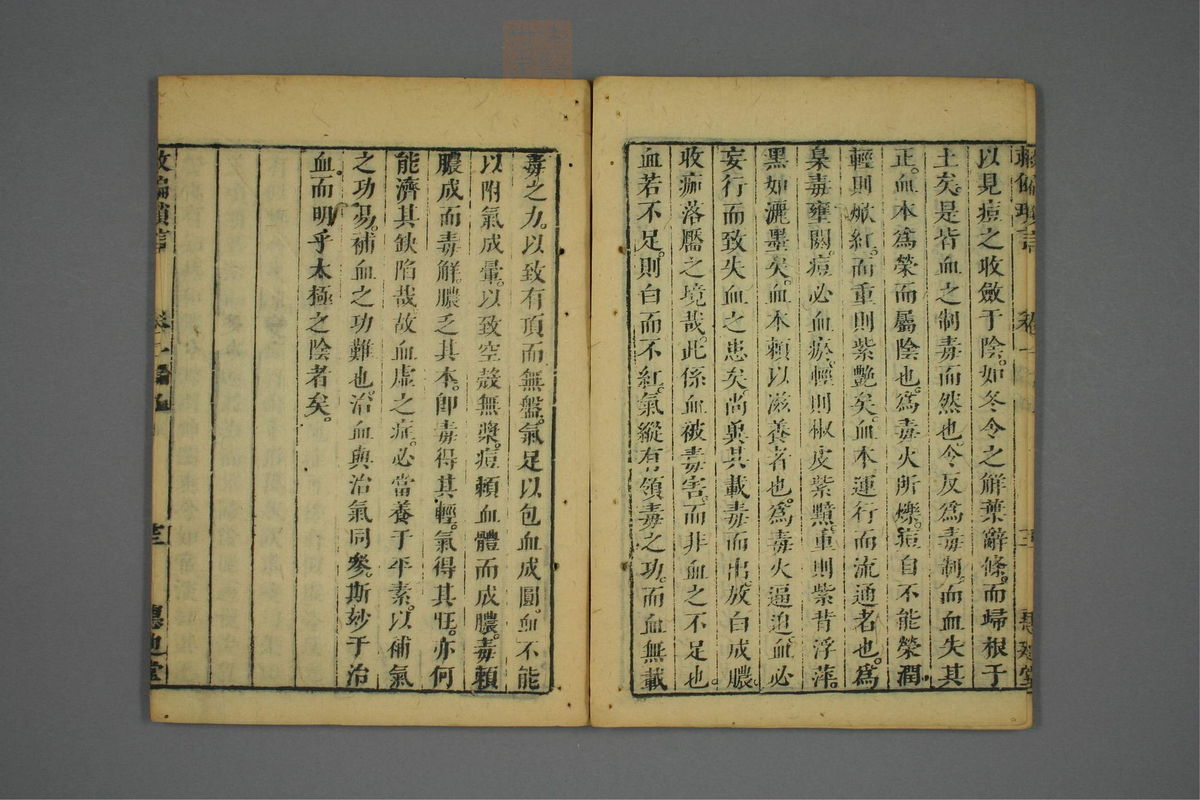 以見痘之收斂于陰。如冬令之解葉辭條。而歸根于
土矣。是皆血之制毒而然也。今反爲毒制。而血失其
正。血本爲榮而屬陰也。爲毒火所爍。痘自不能榮潤。
輕則焮紅。而重則紫艷矣。血本運行而流通者也。爲
梟毒壅閼。痘必血瘀。輕則椒皮紫黯。重則紫背浮萍。
黑如灑墨矣。血本賴以滋養者也。爲毒火逼迫。血必
妄行而致失血之患矣。尚奠其載毒而出。放白成膿。
收痂落靨之境哉。此係血被毒害。而非血之不足也。
血若不足。則白而不紅。氣縱有領毒之功。而血無載
毒之力。以致有頂而無盤。氣足以包血成圓。血不能
以附氣成暈。以致空殼無漿。痘賴血體而成膿。毒賴
膿成而毒解。膿乏其本。卽毒得其輕。氣得其旺。亦何
能濟其缺陷哉。故血虛之症。必當養于平素。以補氣
之功易。補血之功難也。治血與治氣同參。斯妙于治
血而明乎太極之陰者矣。